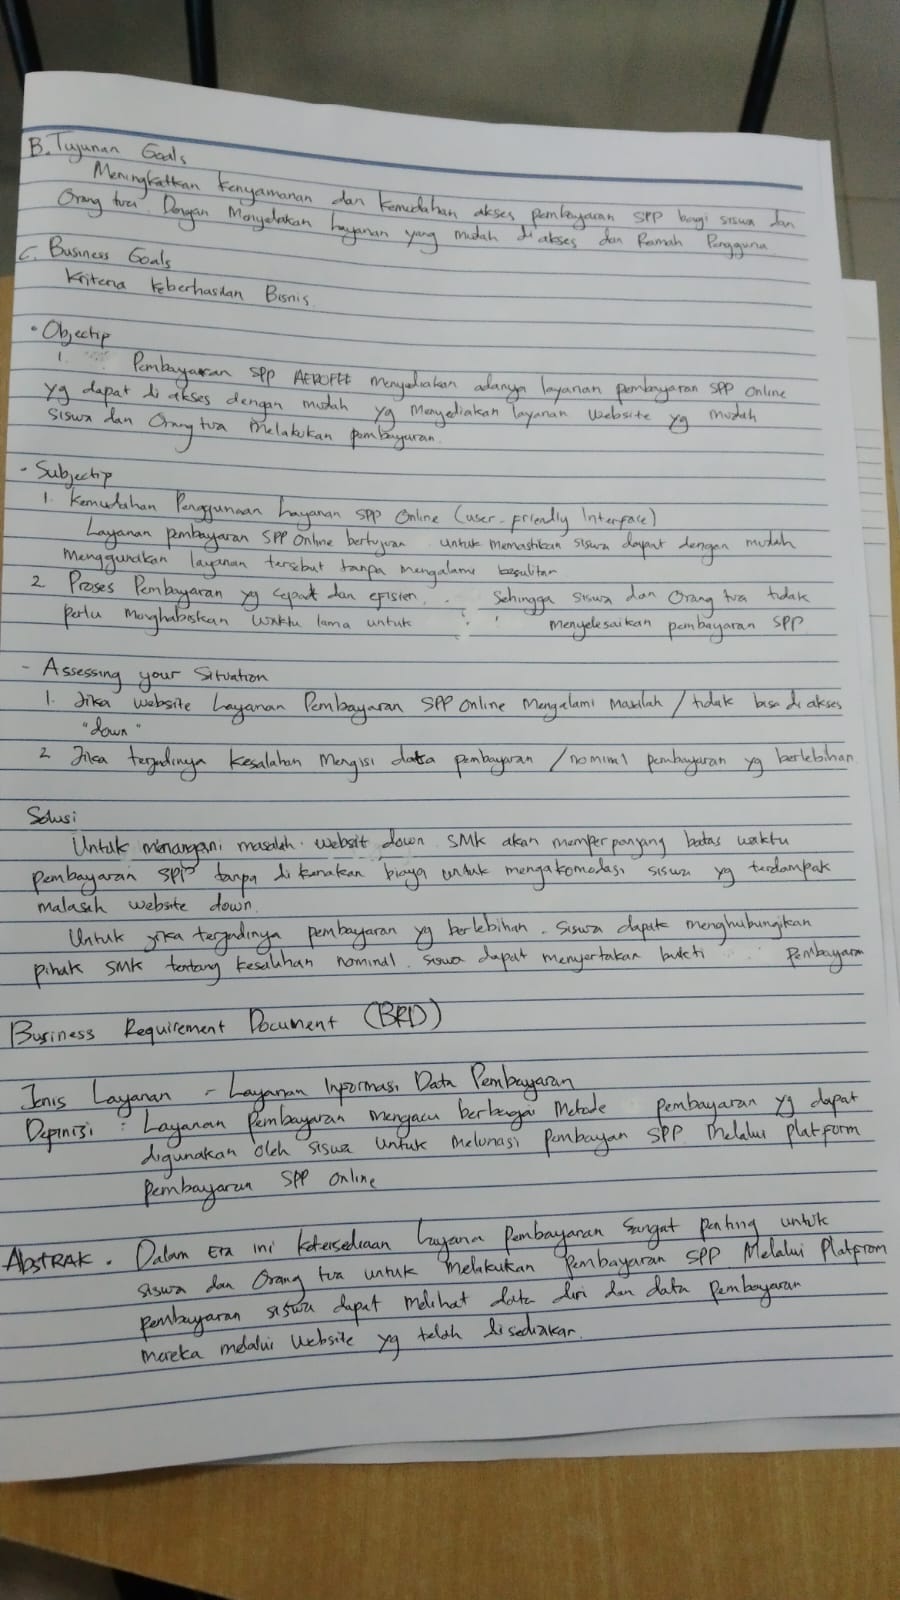 B. Tujunan Goals
Meningkatkan kenyamanan dan kemudahan akses pembayaran SPP bagi siswa dan
Orang tua. Dengan Menyediakan layanan yang mudah di akses dan Ramah Pengguna
C. Business Goals
Kriteria keberhasilan Bisnis.
• Objectip
1. Pembayaran SPP AEROFEE menyediakan adanya layanan pembayaran SPP Online
yg dapat di akses dengan mudah yg Menyediakan layanan website yg mudah
siswa dan Orang tua Melakukan pembayaran.
- Subjectip
1. Kemudahan Penggunaan Layanan SPP Online (user-friendly Interface)
Layanan pembayaran SPP Online bertujuan untuk memastikan siswa dapat dengan mudah
menggunakan layanan tersebut tanpa mengalami kesulitan
2 Proses Pembayaran yg cepat dan efisien. Sehingga siswa dan Orang tua tidak
perlu menghabiskan waktu lama untuk menyelesaikan pembayaran SPP
- Assessing your Situation
1. Jika website Layanan Pembayaran SPP Online Mengalami Masalah / tidak bisa di akses
"down"
2 Jika terjadinya kesalahan Mengisi data pembayaran / nominal pembayaran yg berlebihan
Solusi
Untuk menangani masalah websit down SMK akan memperpanjang batas waktu
pembayaran SPP tanpa di kenakan biaya untuk mengakomodasi siswa yg terdampak
malasah website down.
Untuk jika terjadinya pembayaran yg berlebihan. Siswa dapat menghubungikan
pihak SMK tentang kesalihan nominal. siswa dapat menyertakan bukti pembayaran
Business Requirement Document (BRD)
Jenis Layanan - Layanan Informasi Data Pembayaran
Depinisi : Layanan Pembayaran mengacu berbagai Metode pembayaran yg dapat
digunakan oleh siswa untuk melunasi pembayan SPP Melalui platform
pembayaran SPP Online
ABSTRAK. Dalam Era ini ketersediaan layana pembayaran sangat penting untuk
siswa dan Orang tua untuk melakukan pembayaran SPP. Melalui Platprom
pembayaran siswa dapat melihat data diri dan data pembayaran
mereka melalui website yg telah disediakan.